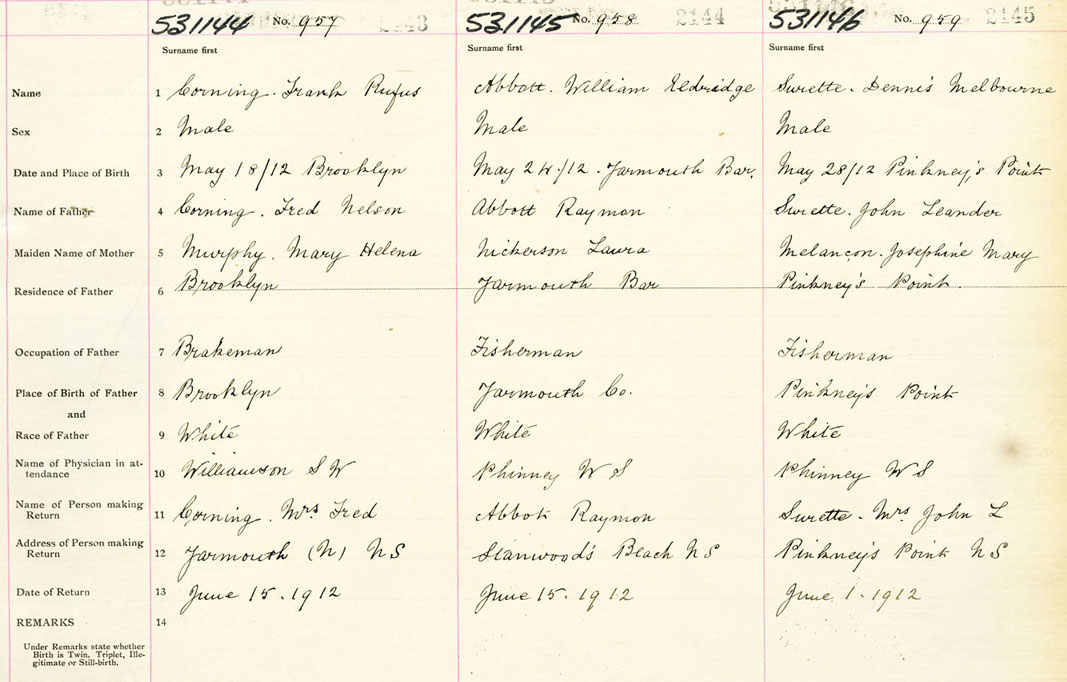 531144 No. 957 2143 531145 No. 958 2144 531146 No. 959 2145
Surname first Surname first Surname first
Name 1 Corning. Frank Rufus Abbott. William Eldridge Surette. Dennis Melbourne
Sex 2 Male Male Male
Date and Place of Birth 3 May 18/12 Brooklyn May 24/12. Yarmouth Bar. May 28/12 Pinkney's Point
Name of Father 4 Corning. Fred Nelson Abbott Raymon Surette. John Leander
Maiden Name of Mother 5 Murphy. Mary Helena Nickerson Laura Melançon. Josephine Mary
Residence of Father 6 Brooklyn Yarmouth Bar Pinkney's Point.
Occupation of Father 7 Brakeman Fisherman Fisherman
Place of Birth of Father 8 Brooklyn Yarmouth Co. Pinkney's Point
and
Race of Father 9 White White White
Name of Physician in at-
tendance 10 Williamson S W Phinney W S Phinney W S
Name of Person making
Return 11 Corning. Mrs Fred Abbott Raymon Surette. Mrs John L
Address of Person making
Return 12 Yarmouth (N) NS Stanwood's Beach NS Pinkney's Point NS
Date of Return 13 June 15. 1912 June 15. 1912 June 1. 1912
REMARKS 14
Under Remarks state whether
Birth is Twin, Triplet, Ille-
gitimate or Still-birth.